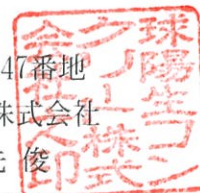 47番地
株式会社
俊
球陽生コン
クリート株式
会社之印